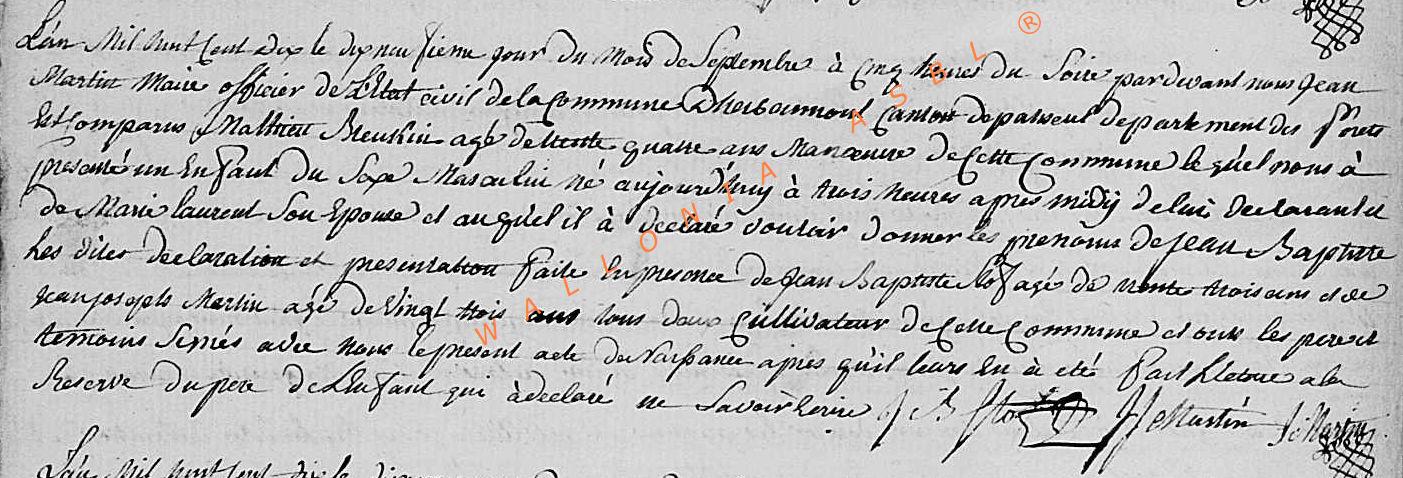 L'an Mil huit Cent dix le dix neufieme jour du Mois de Septembre à Cinq heures du Soire pardevant nous Jean
Martin Maire officier de L'Etat civil de la Commune D'herbeumont Canton de paliseul departement des forets
Est Comparus Mathieu age de trente quatre ans Manœuvre de Cette Commune le quel nous à
presenté un Enfant du Sexe Masculin né aujourd'huy à trois heures apres midÿ de lui declarant et
de Marie laurent Son Epouse et auquel il à declaré vouloir donner les prenoms de Jean Baptiste
Les dites declaration et presentation faite En presence de Jean Baptiste agé de trente trois ans et de
Jean joseph Martin agé de Vingt trois ans tous deux Cultivateur de Cette Commune et onts les pere et
temoins Signés avec nous le present acte de Naissance apres qu'il leurs En à eté fait Lecture a la
Reserve du pere de L'Enfant qui à declaré ne Savoir Ecrire J B J J Martin J Martin
L'an Mil huit Cent dix le
WALLONIA ASBL ®